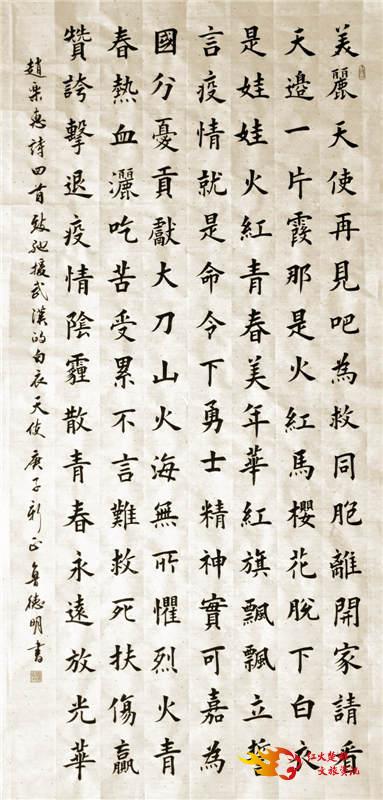 美麗天使再見吧為救同胞離開家請看
天邊一片霞那是火紅馬櫻花脫下白衣
是娃娃火紅青春美年華紅旗飄飄立誓
言疫情就是命令下勇士精神實可嘉為
國分憂貢獻大刀山火海無所懼烈火青
春熱血灑吃苦受累不言難救死扶傷贏
贊誇擊退疫情陰霾散青春永遠放光華
趙栗惠詩四首致馳援武漢的白衣天使庚子新正魯德明書
红火楚雄
文旅资讯